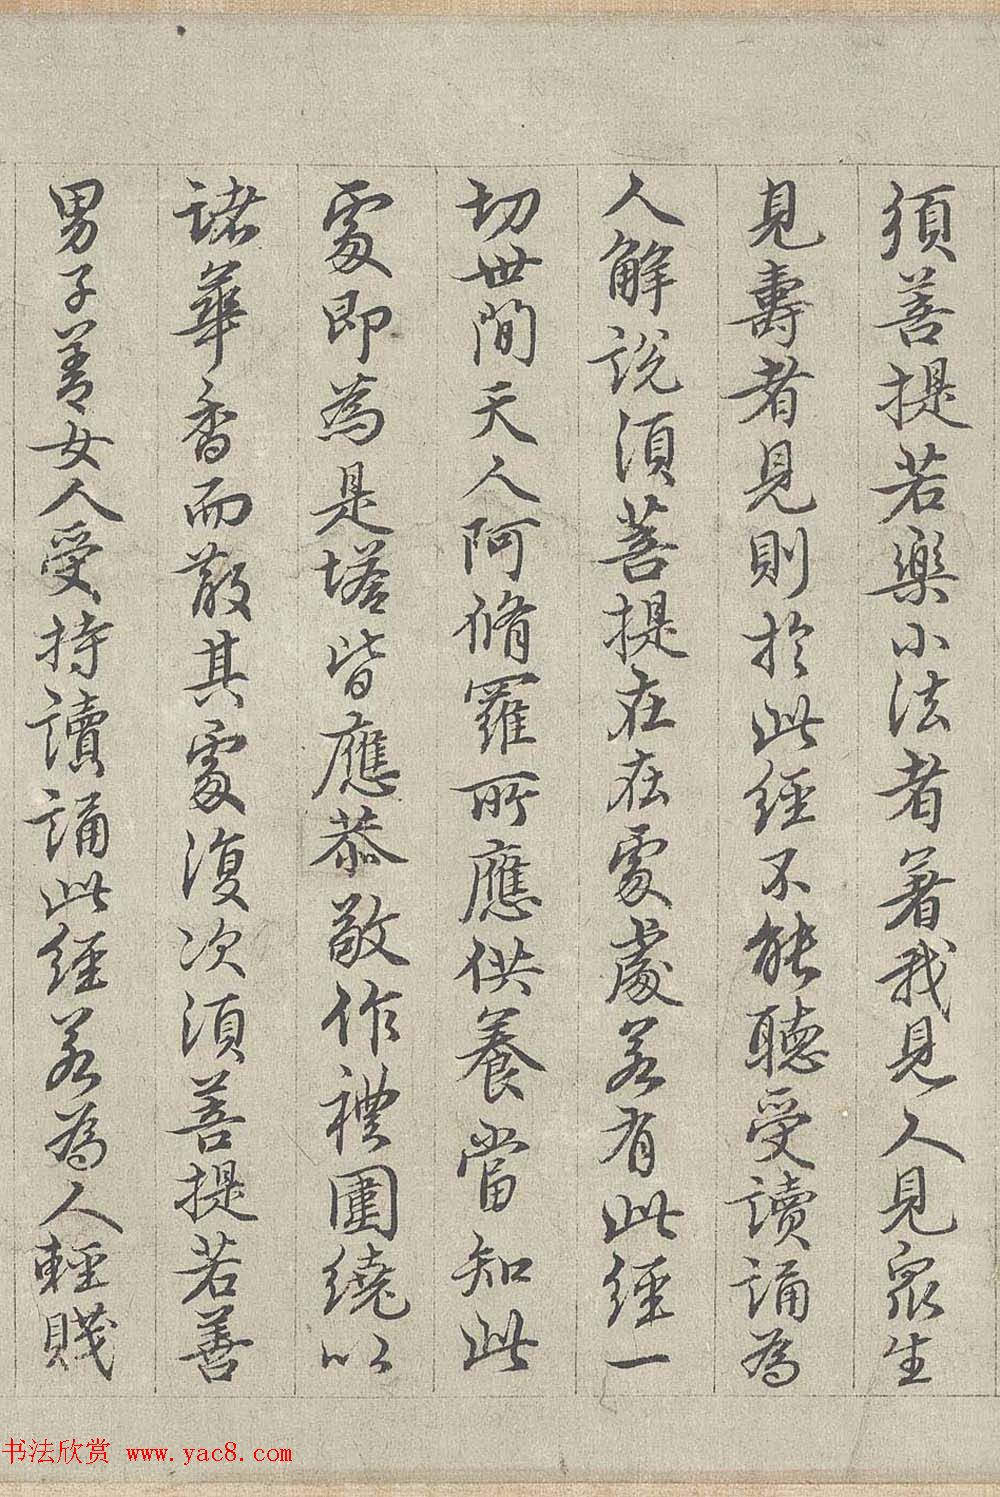 須菩提若樂小法者著我見人見眾生
見壽者見則於此經不能聽受讀誦為
人解說須菩提在在處處若有此經一
切世間天人阿脩羅所應供養當知此
處即為是塔皆應恭敬作禮圍繞以
諸華香而散其處復次須菩提若善
男子善女人受持讀誦此經若為人輕賤
书法欣赏 www.yac8.com